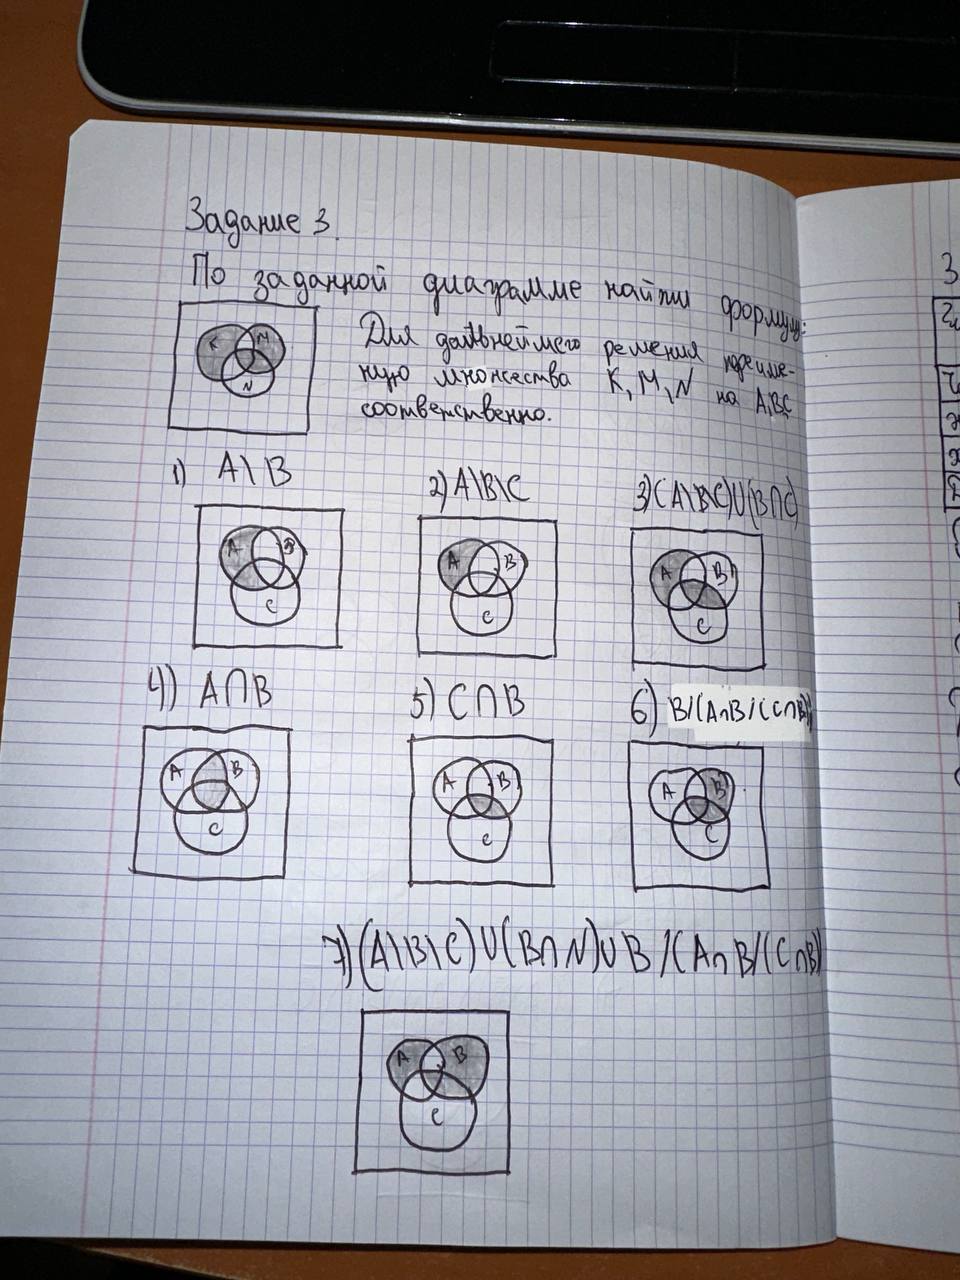 Задание 3.
По заданной диаграмме найти формулу:
K M
N
Для дальнейшего решения переиме-
ную множества K, M, N на A,B,C
соответственно.
1) A\B
2) A\B\C
3) (A\B\C)U(B∩C)
A B
C
A B
C
A B
C
4) A∩B
5) C∩B
6) B/(A∩B/(C∩B))
A B
C
A B
C
A B
C
7) (A\B\C)U(B∩N)UB/(A∩B/(C∩B))
A B
C